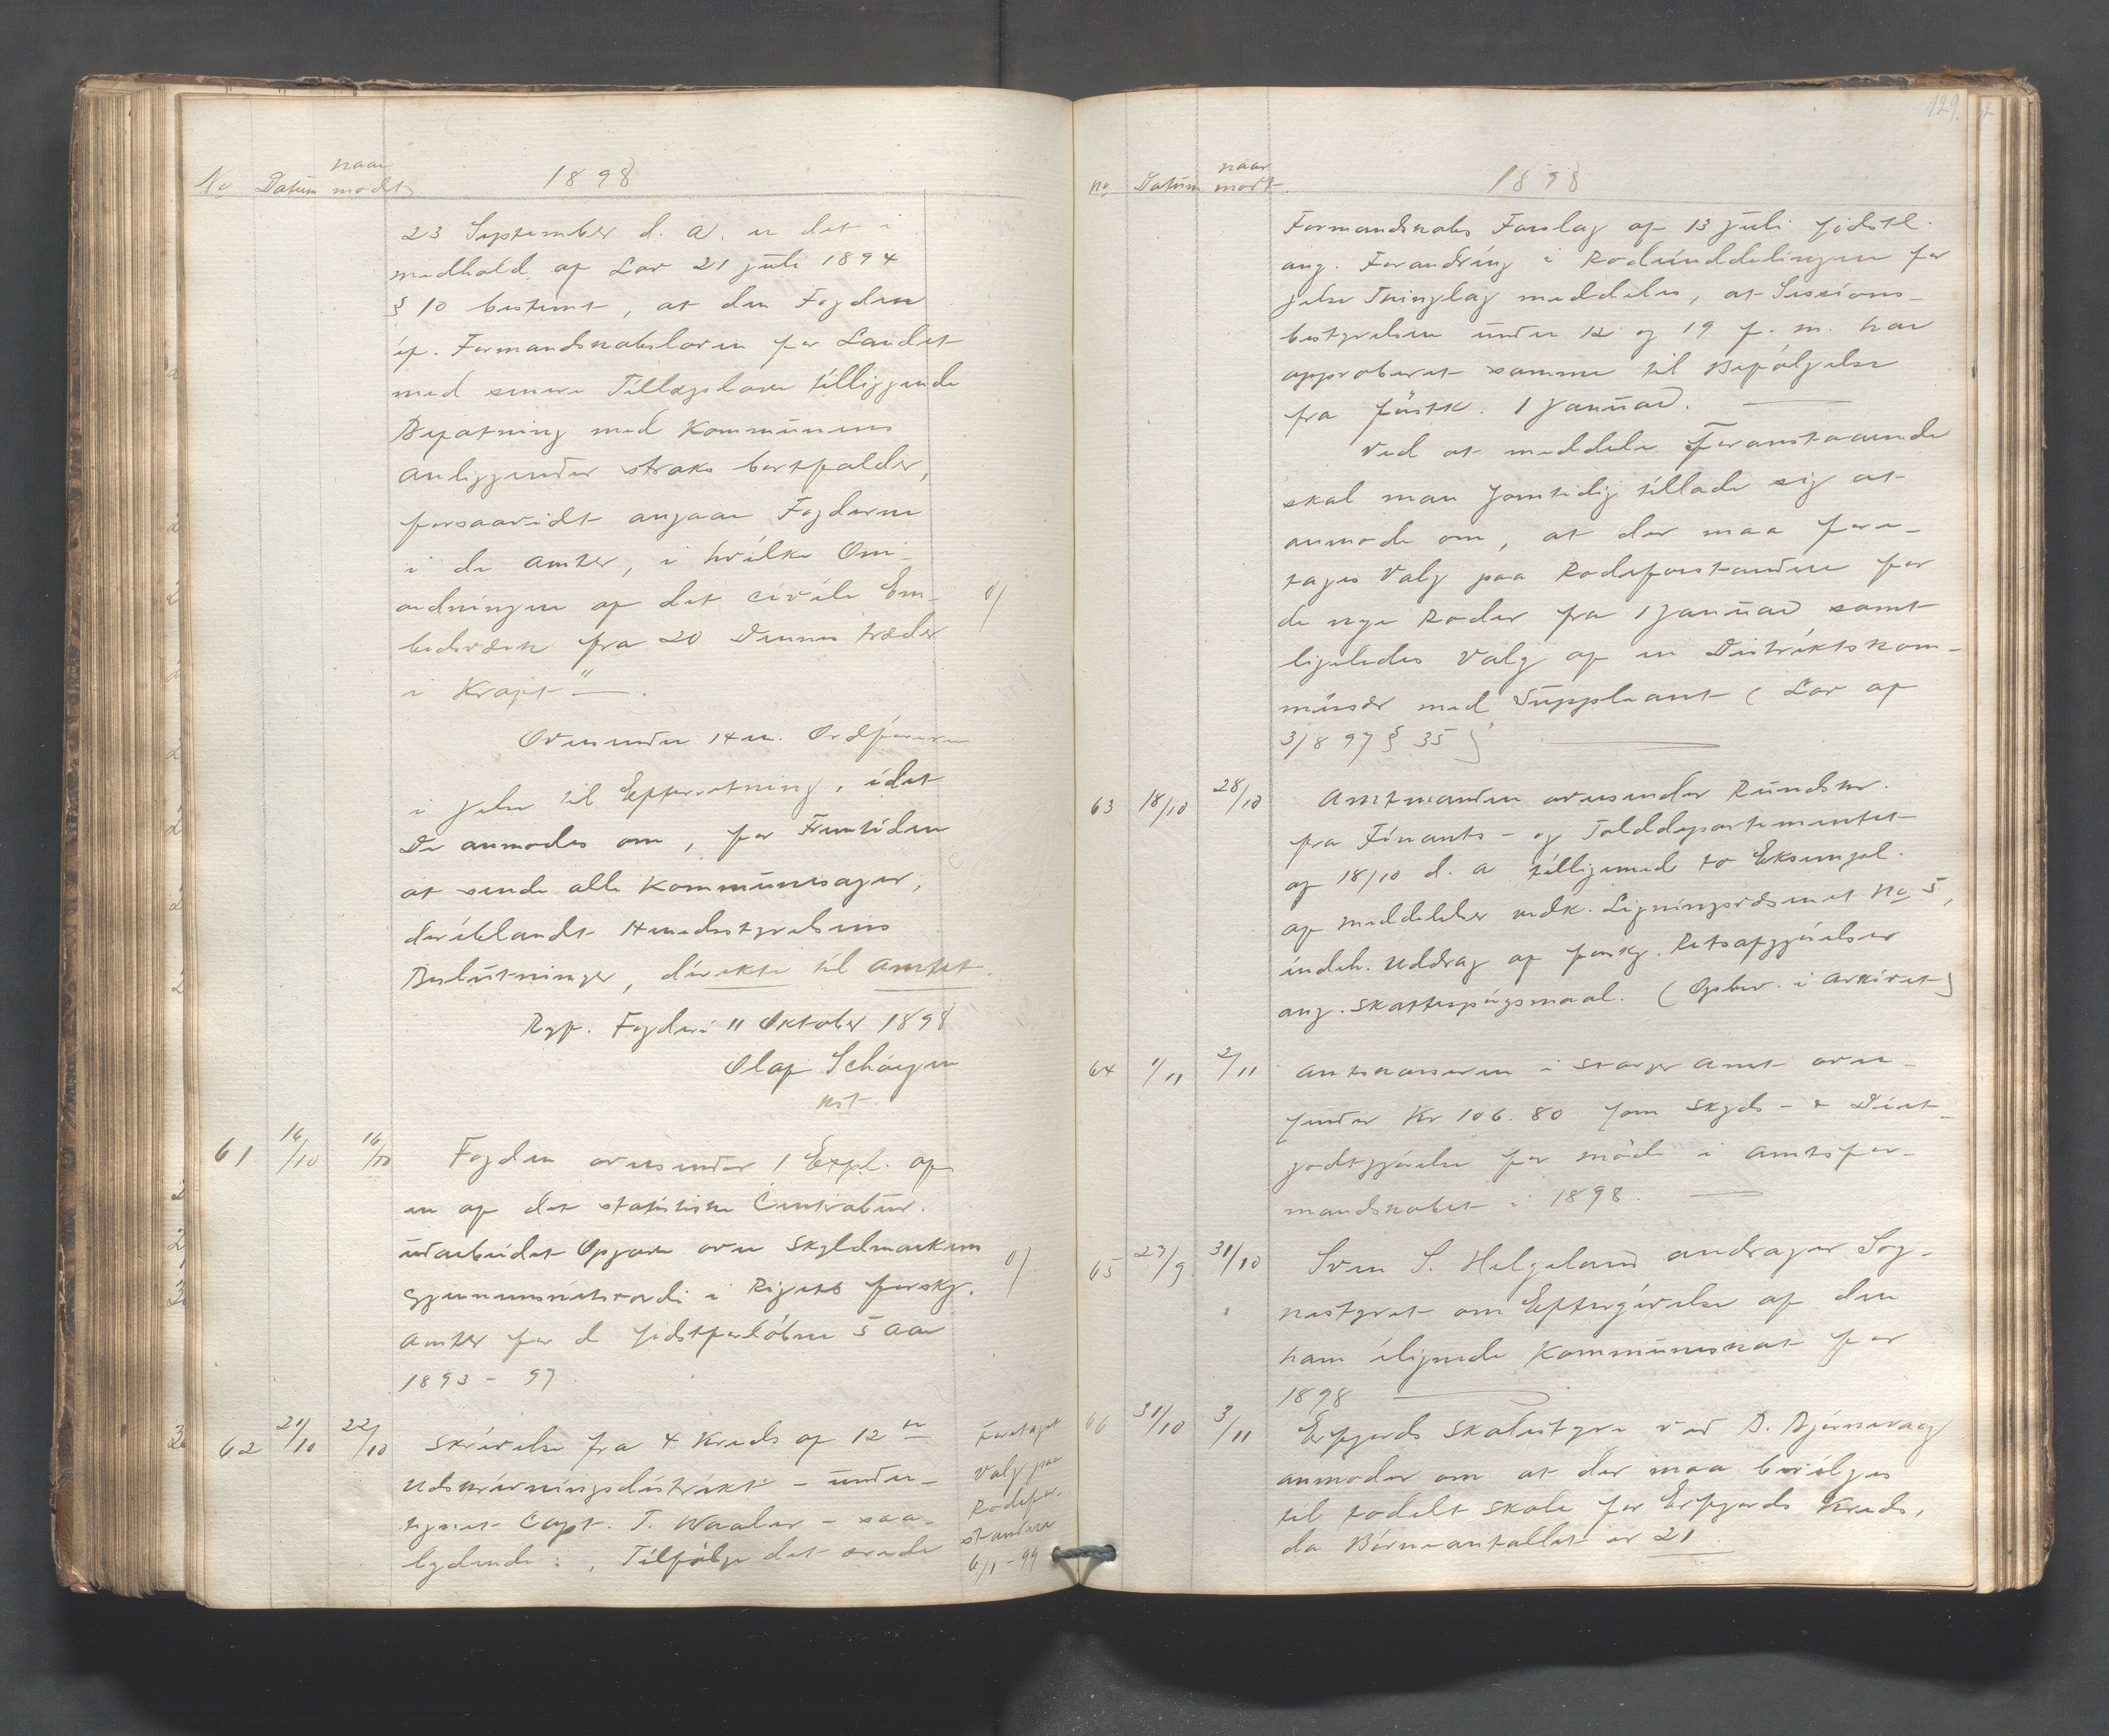 No Datum naar modt. 1898
23 September d. A. er det i
medhold af Lov 21 juli 1894
§ 10 bestemt, at den Fogden
if. Formandskabsloven for Landet
med senere Tillægslove tilliggende
Befatning med Kommunens
anliggender straks bortfalder,
forsaavidt angaar Fogderne
i de Amter, i hvilke Om-
ordningen af det civile Em- 0/
bedsværk fra 20 Dennes træder
i Kraft" —.
Oversendes Hr. Ordføreren
i Jelse til Efterretning, idet
De anmodes om, for Fremtiden
at sende alle Kommunesager,
deriblandt Herredsstyrelsens
Beslutninger, direkte til Amtet.
Ryf. Fogderi 11 Oktober 1898
Olaf Schöyen
kst.
61 16/10 16/10 Fogden oversender 1 Expl. af
en af det statistiske Centralbur.
udarbeidet Opgave over Skyldmarkens
Gjennemsnitsværdi i Rigets forskj. 0/
Amter for d sidstforløbne 5 Aar
1893 - 97
62 21/10 22/10 Skrivelse fra 4 Kreds af 12te
Udskrivningsdistrikt - under-
tegnet Capt. T. Waaler - saa-
lydende: „Tilfølge det ærede
Foretaget
Valg paa
Rodefor-
standere
6/1-99
129.
No Datum naar modt. 1898
Formandskabs Forslag af 13 juli sidstl.
ang. Forandring i Rodeinddelingen for
Jelse Thinglag meddeles, at Sessions-
bestyrelsen under 12 og 19 f. m. har
approberet samme til Befølgelse
fra førstk. 1 Januar. —
Ved at meddele Foranstaaende
skal man samtidig tillade sig at
anmode om, at der maa fore-
tages Valg paa Rodeforstandere for
de nye Roder fra 1 Januar samt
ligeledes Valg af en Distriktskom-
missær med Suppleant (Lov af
3/8 97 § 35)" —
63 18/10 28/10 Amtmanden oversender Rundskr.
fra Finants- og Tolddepartementet
af 18/10 d. a tilligemed to Eksempl.
af Meddelelser vedk. Ligningsvæsenet No 5,
indeh. Uddrag af forskj. Retsafgjørelser
ang. Skattespørgsmaal. (Opbev. i Arkivet)
64 1/11 2/11 Amtskassereren i Stavgr Amt over-
sender Kr 106.80 som Skyds- & Diæt-
godtgjørelse for møde i Amtsfor-
mandskabet i 1898. —
65 27/9 31/10 Sven S. Helgeland andrager Sog-
nestyret om Eftergivelse af den
ham ilignede Kommuneskat for
1898 —
66 31/10 3/11 Erfjords Skolestyre ved B. Bjørnevaag
anmoder om at der maa bevilges
til todelt Skole for Erfjords Kreds,
da Børneantallet er 21.